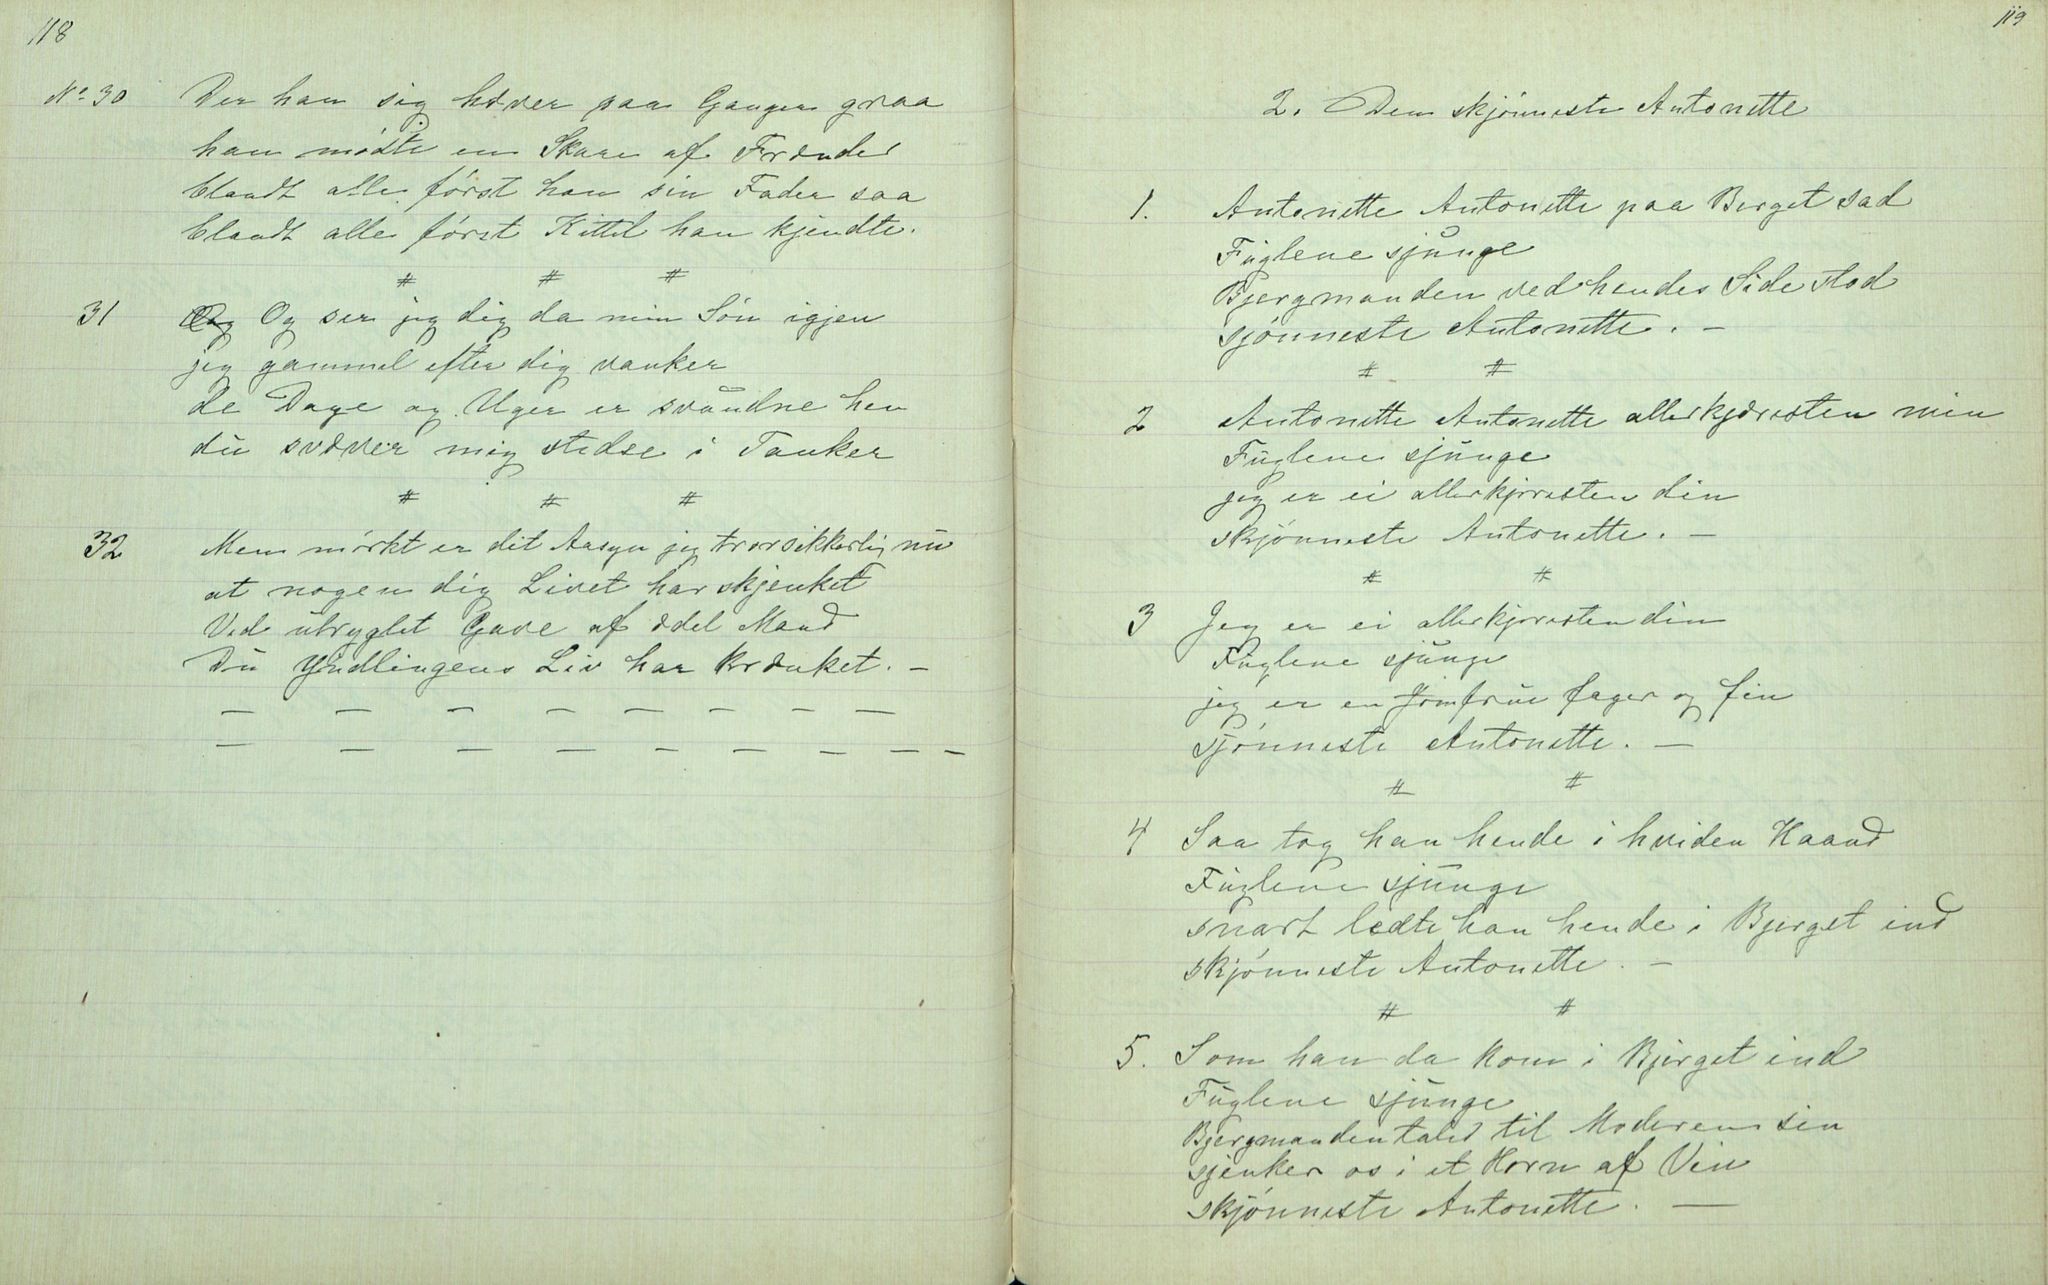 118
No 30 Der han sig hæver paa Ganger graa
han mødte en Skare af Frænder
blandt alle først han sin Fader saa
blandt alle først Kittil han kjendte.
# # #
31 Og Og ser jeg dig da min Søn igjen
jeg gammel efter dig vanker
de Dage og Uger er svundne hen
du svæver mig stedse i Tanker
# # #
32 Men mørkt er dit Aasyn jeg tror sikkerlig nu
at nogen dig Livet har skjenket
Ved utryglet Gave af ædel Mand
Du Yndlingens Liv har krænket. —
— — — — — — — —
— — — — — — — — —
119
2. Den skjønneste Antonette
1. Antonette Antonette paa Berget sad
Fuglene sjunge
Bjergmanden ved hendes Side stod
sjønneste Antonette. —
# #
2 Antonette Antonette allerkjæresten min
Fuglene sjunge
jeg er ei allerkjæresten din
skjønneste Antonette. —
# #
3 Jeg er ei allerkjæresten din
Fuglene sjunge
jeg er en Jomfrue fager og fin
sjønneste Antonette. —
# #
4 Saa tog han hende i hviden Haand
Fuglene sjunge
snart ledte han hende i Bjerget ind
skjønneste Antonette. —
# #
5. Som han da kom i Bjerget ind
Fuglene sjunge
Bjergmanden taled til Moderen sin
sjenker os i et Horn af Vin
skjønneste Antonette. —